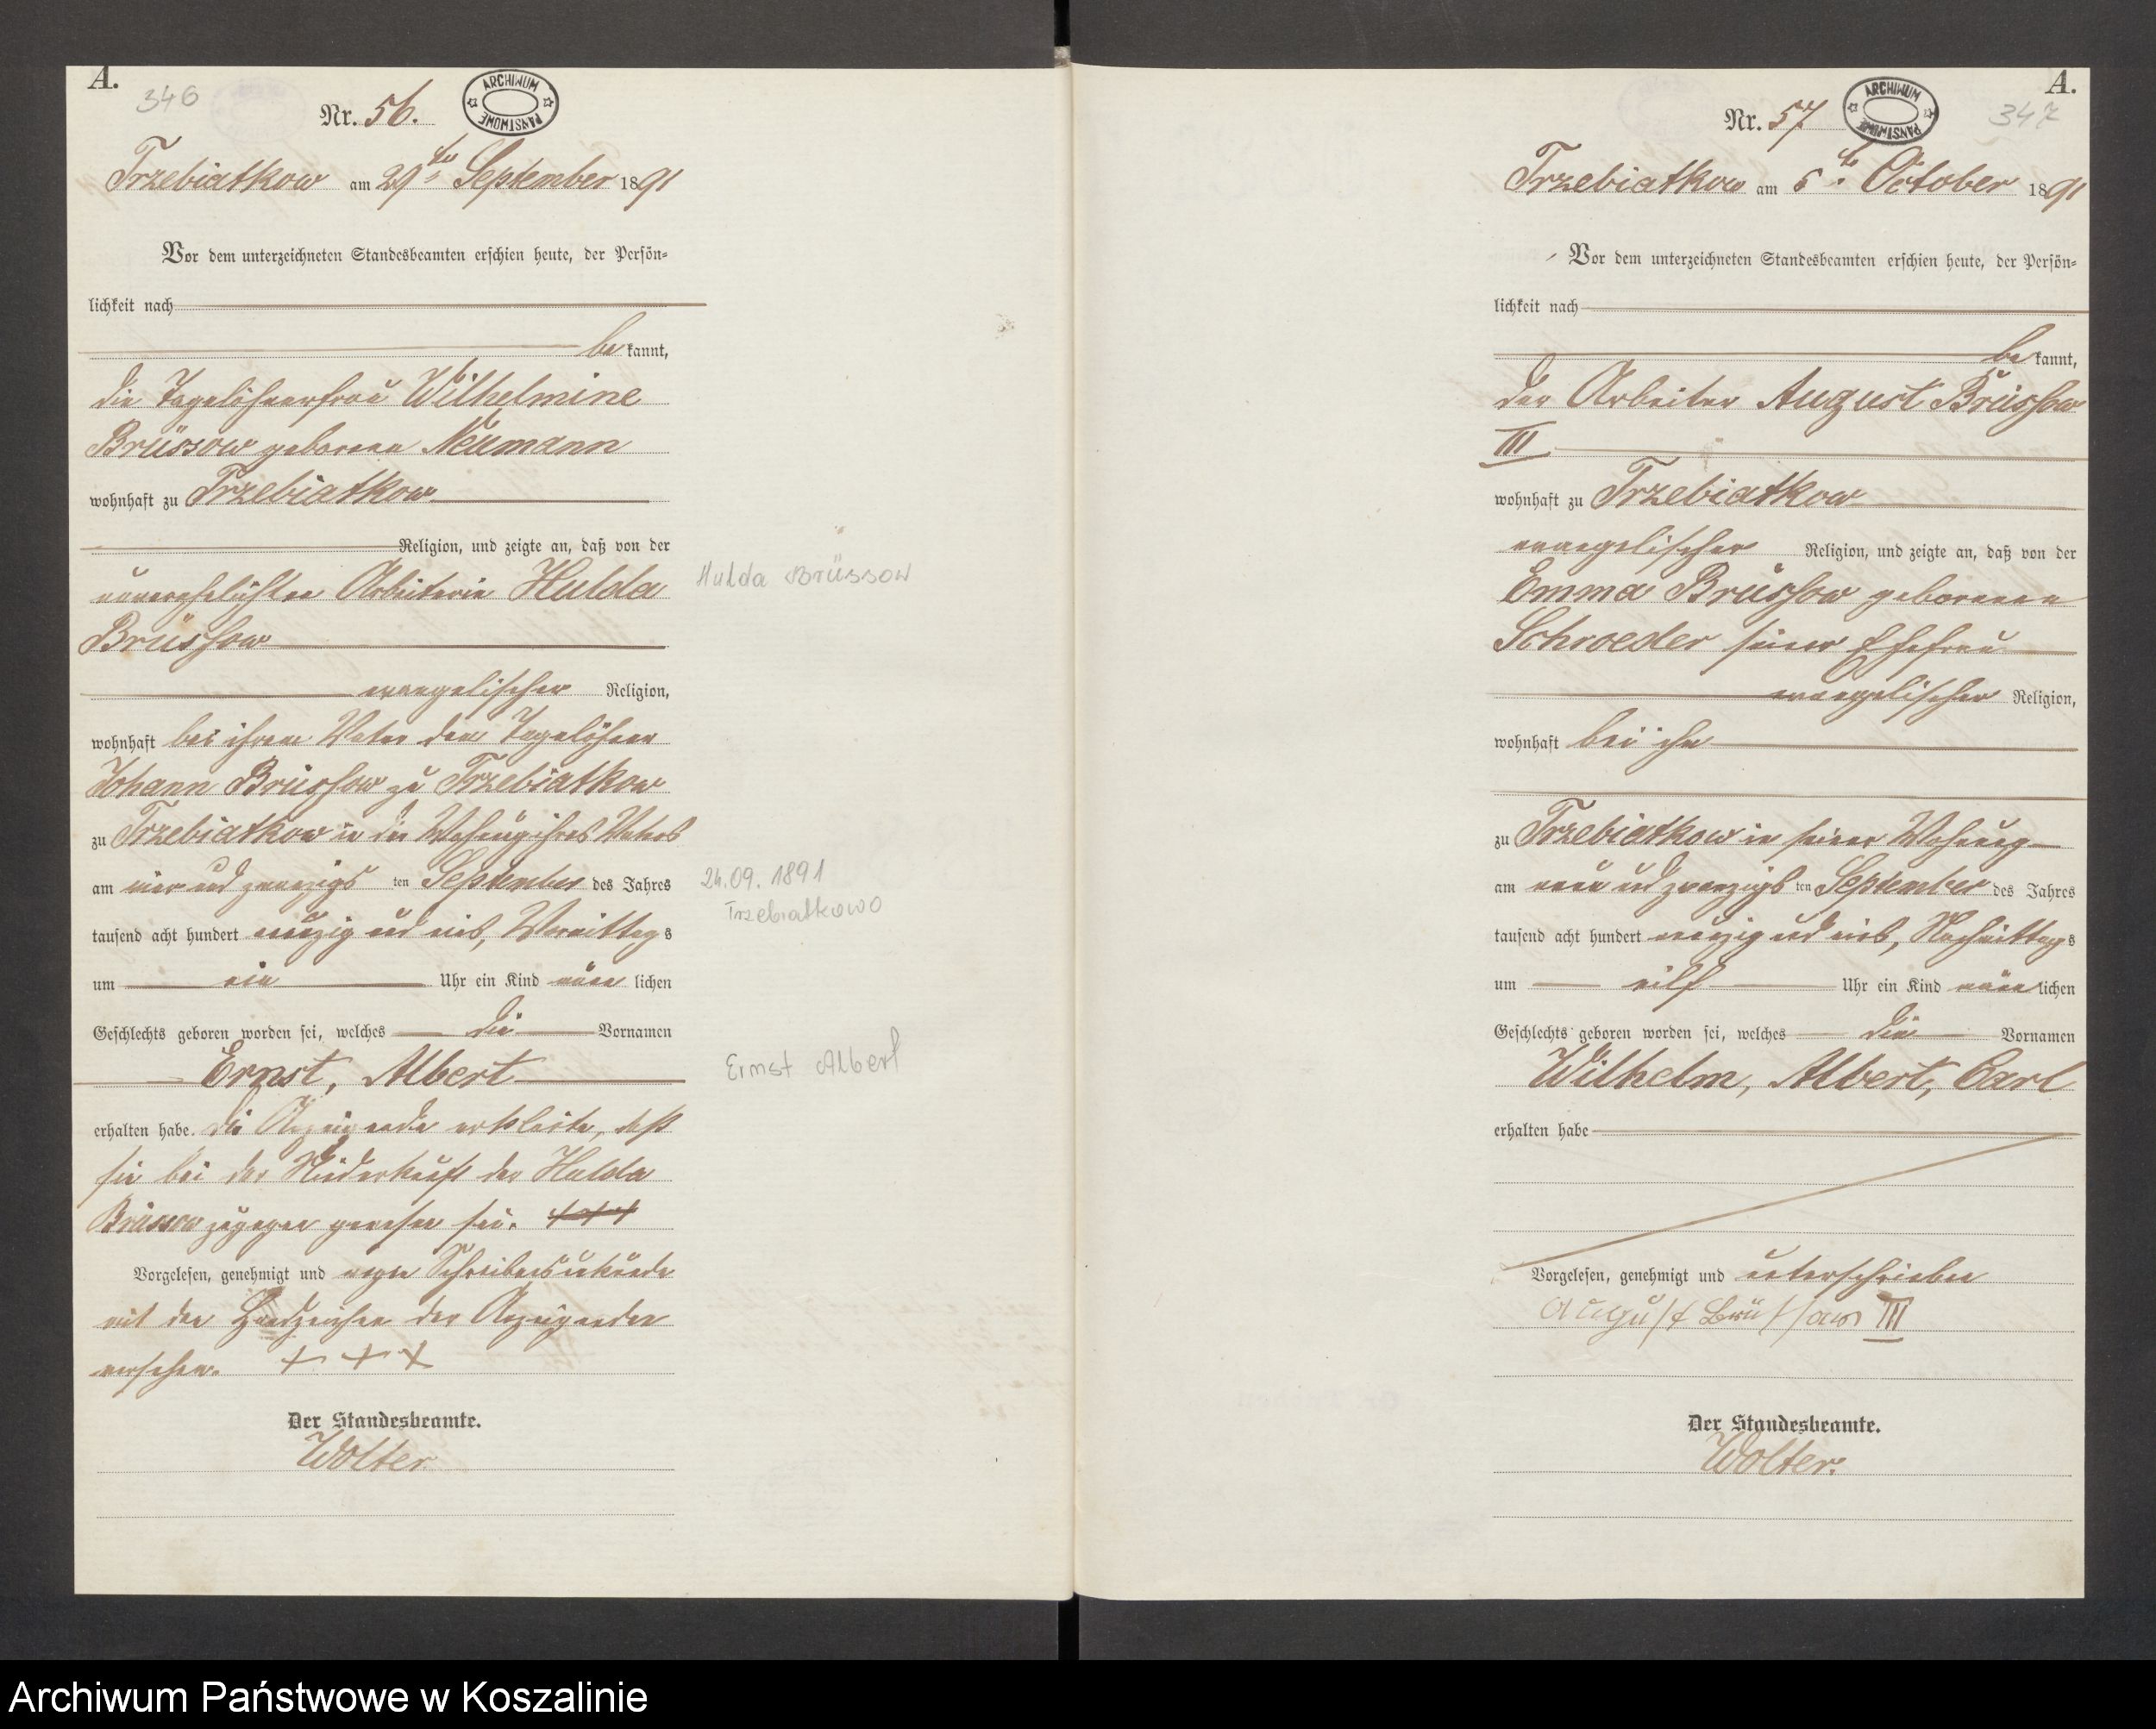 A.
346
Nr. 56.
ARCHIWUM PAŃSTWOWE
Trzebiatkow am 29ten September 1891
Vor dem unterzeichneten Standesbeamten erschien heute, der Persön-
lichkeit nach
be kannt,
die Tagelöhnerfrau Wilhelmine
Brüssow geborene Neumann
wohnhaft zu Trzebiatkow
Religion, und zeigte an, daß von der
unverehelichten Arbeiterin Hulda
Brüssow
evangelischer Religion,
wohnhaft bei ihrem Vater dem Tagelöhner
Johann Brüssow zu Trzebiatkow
zu Trzebiatkow in der Wohnung ihres Vaters
am vier und zwanzigs ten September des Jahres
tausend acht hundert neunzig und eins, Vormittags
um ein Uhr ein Kind männ lichen
Geschlechts geboren worden sei, welches die Vornamen
Ernst, Albert
erhalten habe. Die Anzeigende erklärte, daß
sie bei der Niederkunft der Hulda
Brüssow zugegen gewesen sei. +++
Vorgelesen, genehmigt und wegen Schreibensunkunde
mit den Handzeichen der Anzeigenden
versehen. + + +
Der Standesbeamte.
Wolter
Hulda Brüssow
24.09.1891
Trzebiatkowo
Ernst Albert
A.
347
Nr. 57
ARCHIWUM PAŃSTWOWE
Trzebiatkow am 5ten October 1891
Vor dem unterzeichneten Standesbeamten erschien heute, der Persön-
lichkeit nach
be kannt,
der Arbeiter August Brüssow
III
wohnhaft zu Trzebiatkow
evangelischer Religion, und zeigte an, daß von der
Emma Brüssow geborenen
Schroeder seiner Ehefrau
evangelischer Religion,
wohnhaft bei ihm
zu Trzebiatkow in seiner Wohnung
am neun und zwanzigs ten September des Jahres
tausend acht hundert neunzig und eins, Nachmittags
um eilf Uhr ein Kind männ lichen
Geschlechts geboren worden sei, welches die Vornamen
Wilhelm, Albert, Carl
erhalten habe
Vorgelesen, genehmigt und unterschrieben
August Brüssow III
Der Standesbeamte.
Wolter.
Archiwum Państwowe w Koszalinie